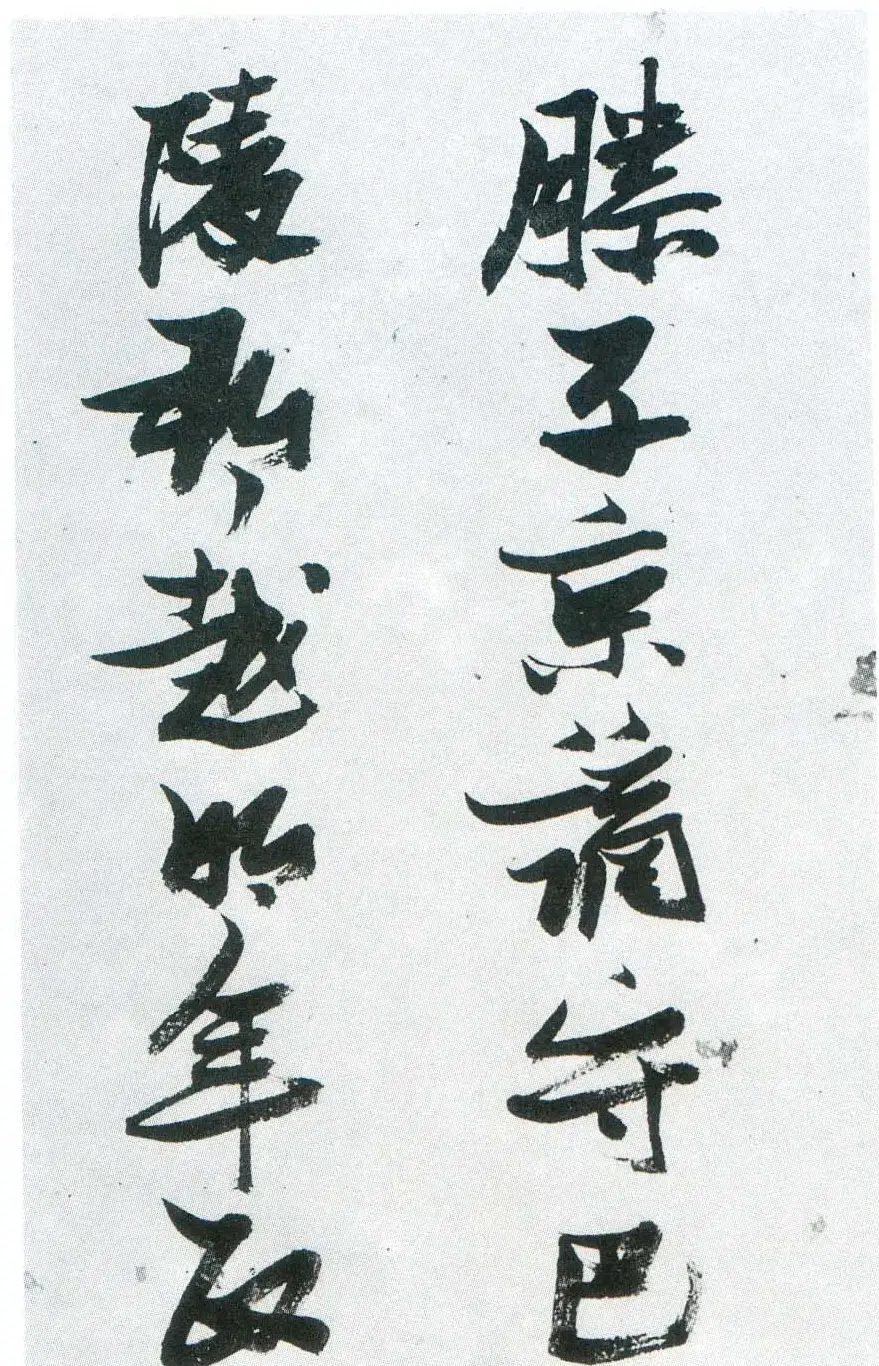 滕子京謫守巴
陵郡越明年政